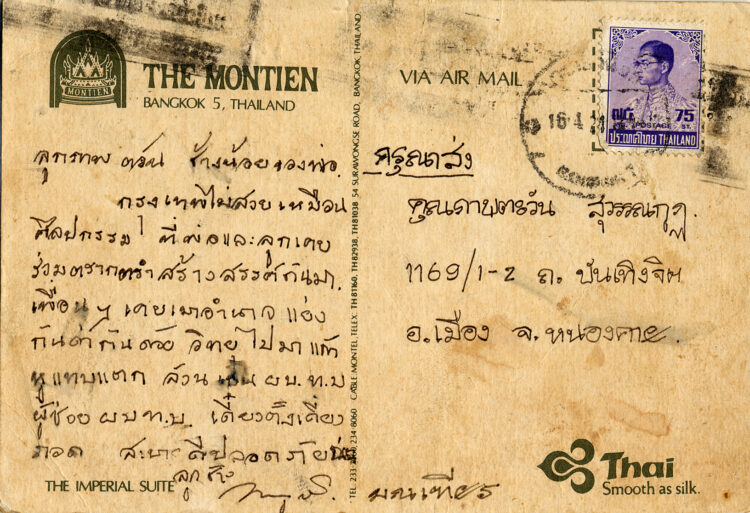 MONTIEN
THE MONTIEN
BANGKOK 5, THAILAND
ลูกภาพตวัน ช้างน้อยของพ่อ
กรุงเทพไม่สวยเหมือน
ศิลปกรรม ที่พ่อและลูกเคย
ร่วมตรากตรำสร้างสรรค์กันมา
เพื่อน ๆ เคยเมาอำนาจ แย่ง
กันด่ากันด้วย วิทยุ ไปมาแก้ว
หูแทบแตก ล้วนเป็น ผบ.ท.บ
ผู้ช่วย ผบ.ท.บ. เดี๋ยวตั้งเดี๋ยว
ถอด สบายดีปลอดภัย
ลูกช้าง
THE IMPERIAL SUITE
54 SURAWONGSE ROAD, BANGKOK, THAILAND
CABLE MONTEL, TELEX TH81160, TH82938, TH81038
TEL. 234-8060
VIA AIR MAIL
16.4
๗๕ 75
POSTAGE ST.
ประเทศไทย THAILAND
กรุณาส่ง
คุณภาพตะวัน สุวรรณกูฏ
1169/1-2 ถ. บันเทิงจิต
อ.เมือง จ.หนองคาย.
มณเฑียร
Thai
Smooth as silk.